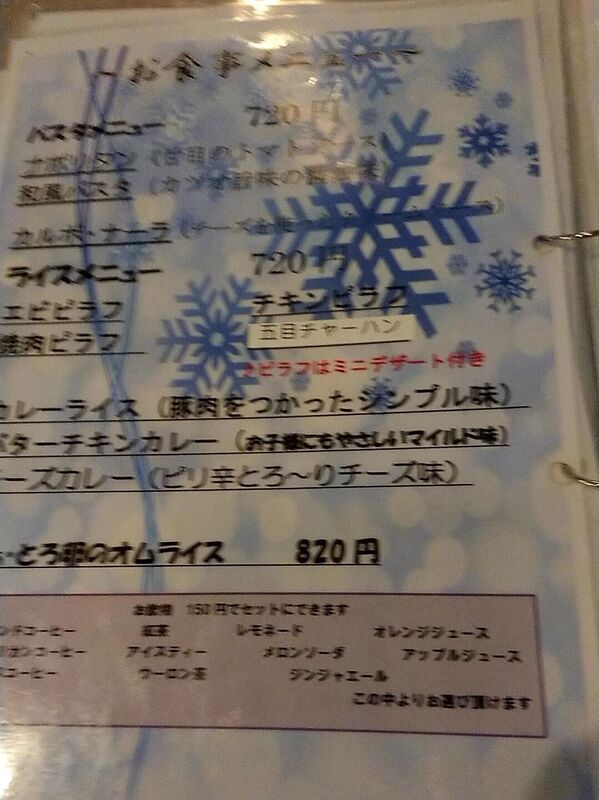 お食事メニュー
パスタメニュー 720円
ナポリタン（甘目のトマトソース）
和風パスタ（カツオ旨味の醤油味）
カルボ・ナーラ（チーズ
ライスメニュー 720円
エビピラフ チキンピラフ
焼肉ピラフ 五目チャーハン
♪ピラフはミニデザート付き
カレーライス（豚肉をつかったシンプル味）
バターチキンカレー（お子様にもやさしいマイルド味）
ーズカレー（ピリ辛とろ～りチーズ味）
・とろ卵のオムライス 820円
お飲物 150円でセットにできます
ンチコーヒー 紅茶 レモネード オレンジジュース
リカンコーヒー アイスティー メロンソーダ アップルジュース
コーヒー ウーロン茶 ジンジャエール
この中よりお選び頂けます